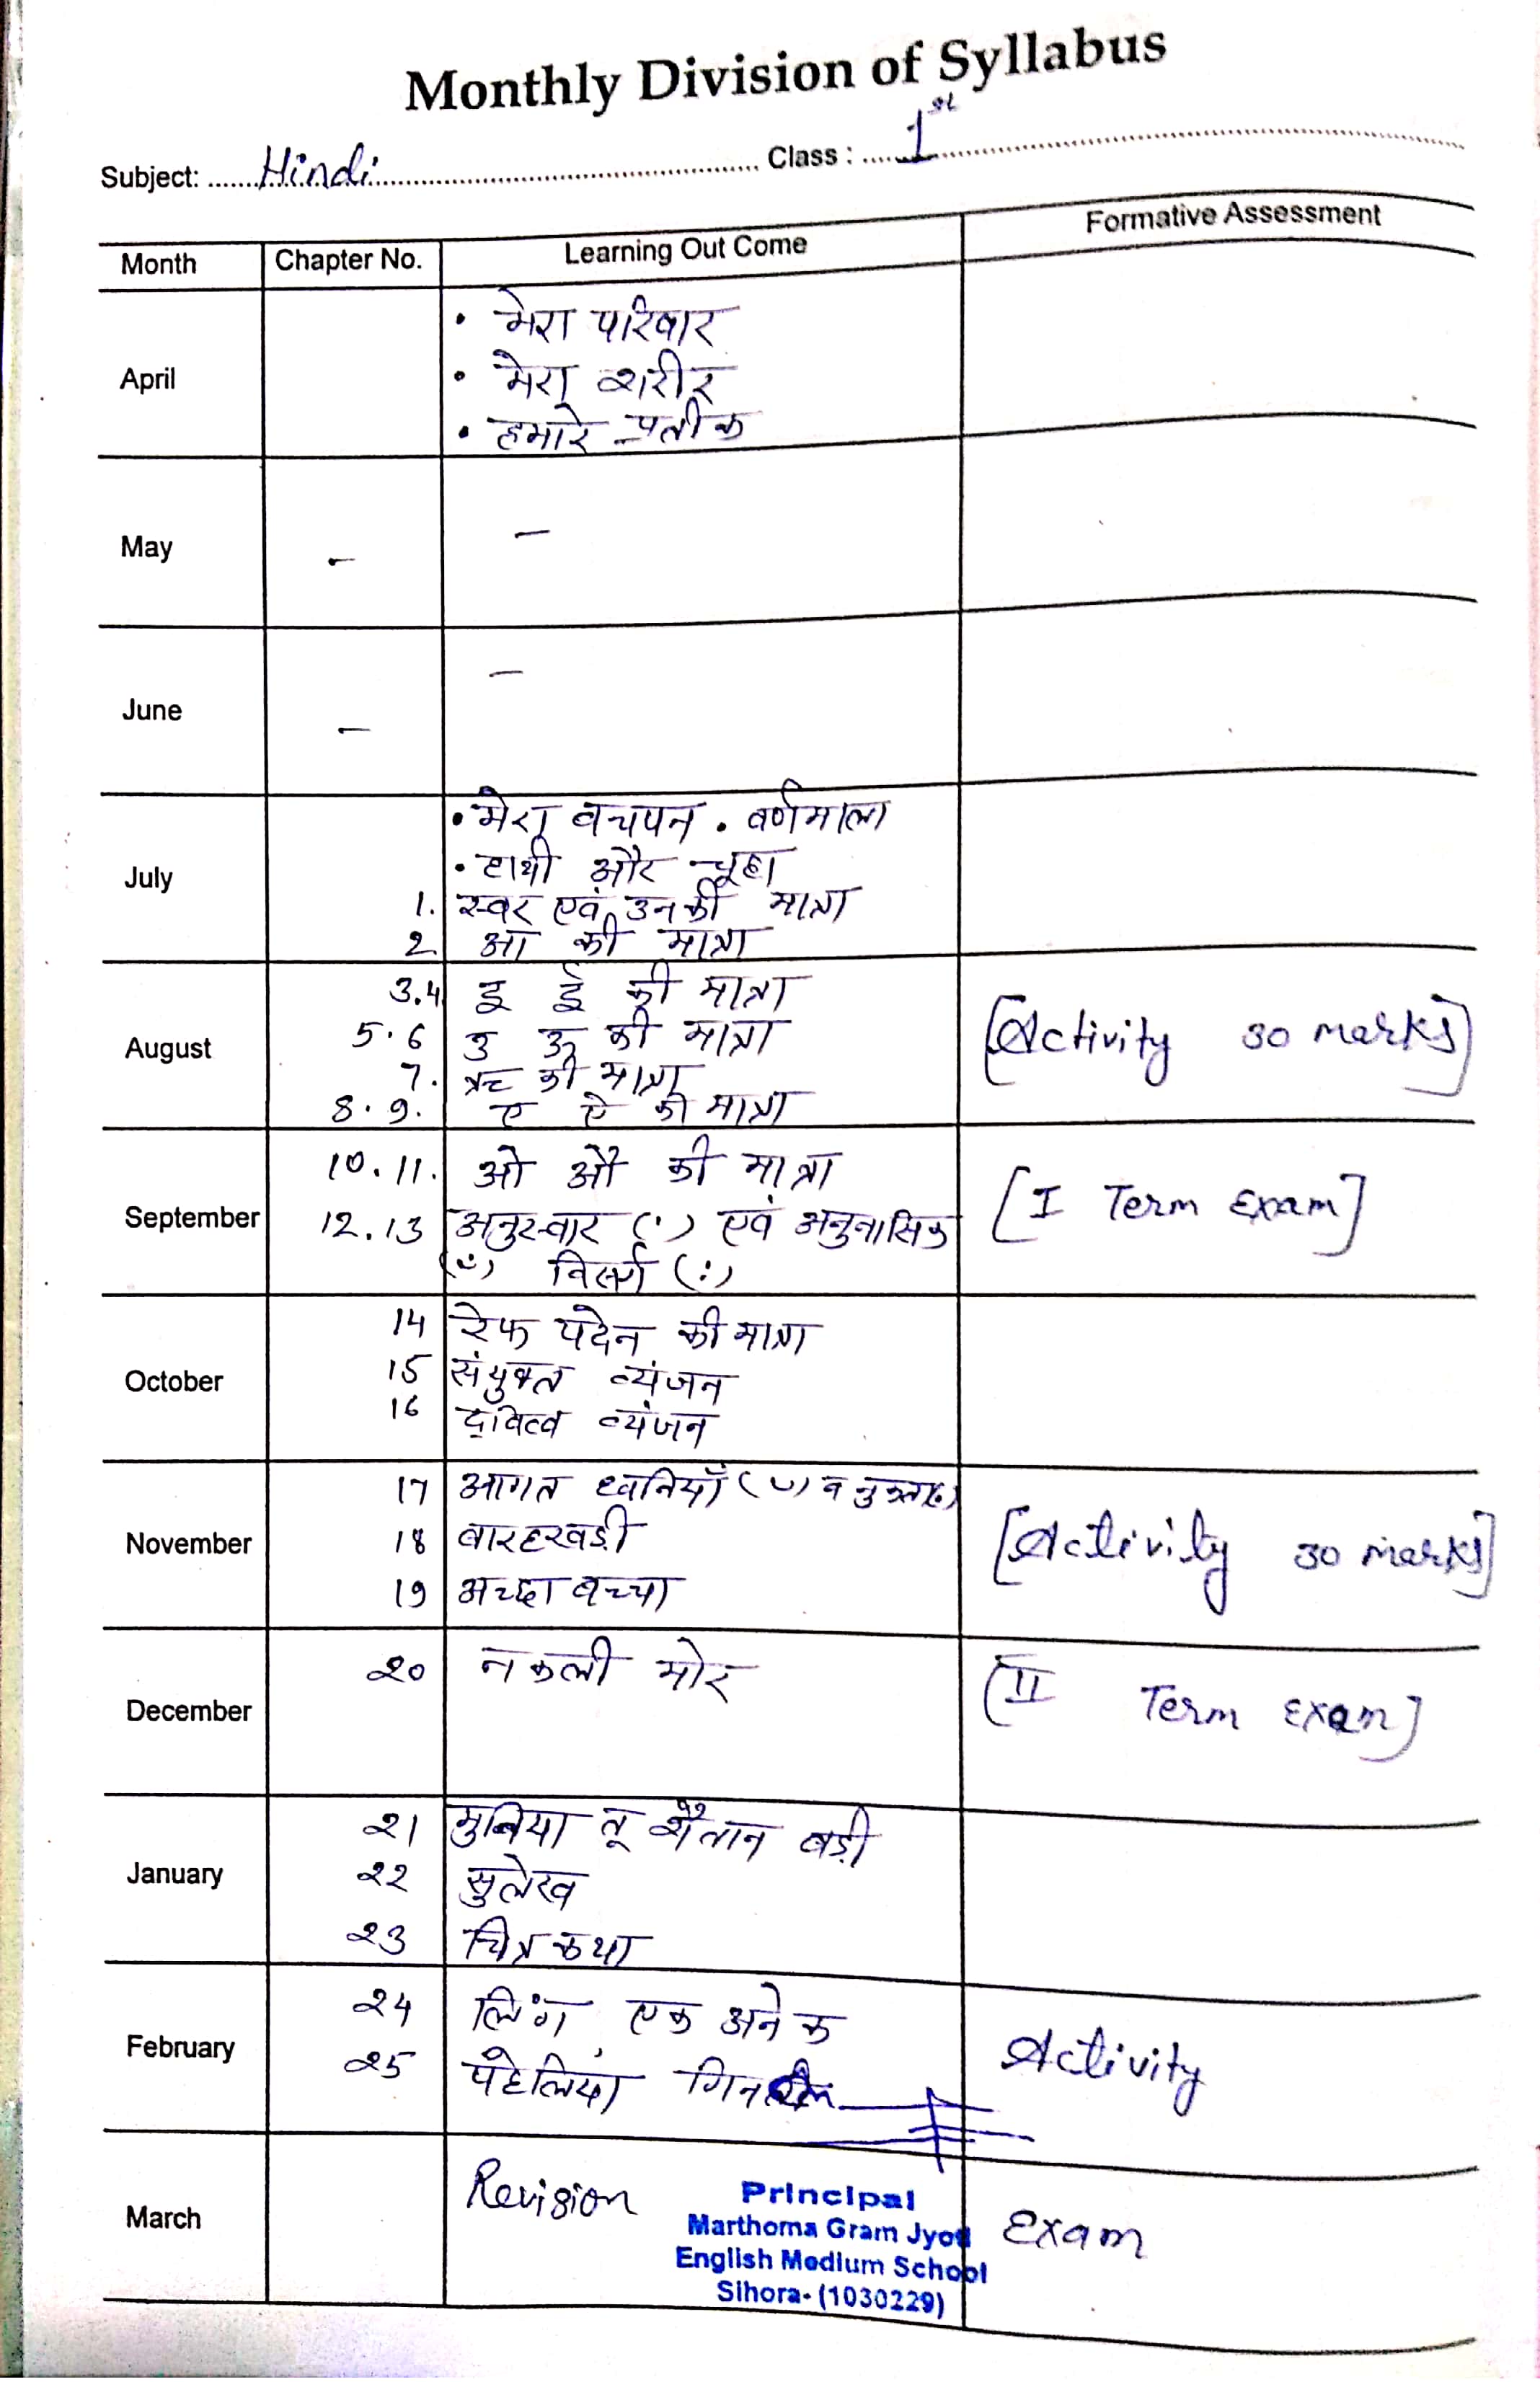 Monthly Division of Syllabus
Subject: Hindi Class : 1st
Month Chapter No. Learning Out Come Formative Assessment
April
• मेरा परिवार
• मेरा शरीर
• हमारे प्रतीक
May - -
June - -
July
• मेरा बचपन • वर्णमाला
• हाथी और चूहा
1. स्वर एवं उनकी मात्रा
2. आ की मात्रा
August
3.4 इ ई की मात्रा
5.6 उ ऊ की मात्रा
7. ऋ की मात्रा
8.9. ए ऐ की मात्रा
[Activity 30 marks]
September
10.11. ओ औ की मात्रा
12.13 अनुस्वार (ं) एवं अनुनासिक
(ँ) विसर्ग (:)
[I Term Exam]
October
14 रेफ पदेन की मात्रा
15 संयुक्त व्यंजन
16 द्वित्व व्यंजन
November
17 आगत ध्वनियाँ (ॅ) व
18 बारहखड़ी
19 अच्छा बच्चा
[Activity 30 marks]
December
20 नकली मोर
[II Term Exam]
January
21 मुनिया तू शैतान बड़ी
22 सुलेख
23 चित्र कथा
February
24 लिंग, एक अनेक
25 पहेलियां
Activity
March
Revision
Exam
Principal
Marthoma Gram Jyoti
English Medium School
Sihora- (1030229)